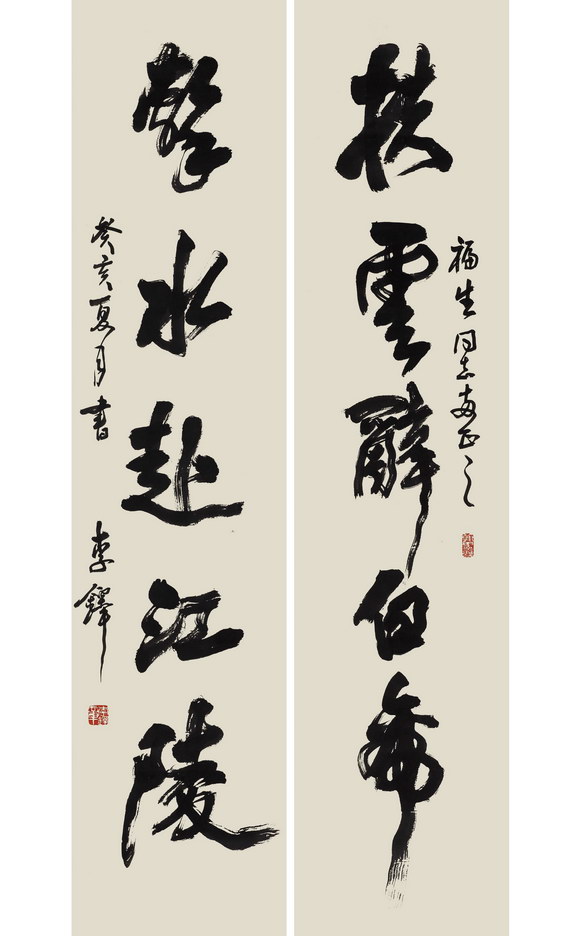 扶雲辭白帝
福生同志正之
擊水赴江陵
癸亥夏月書
李鐸